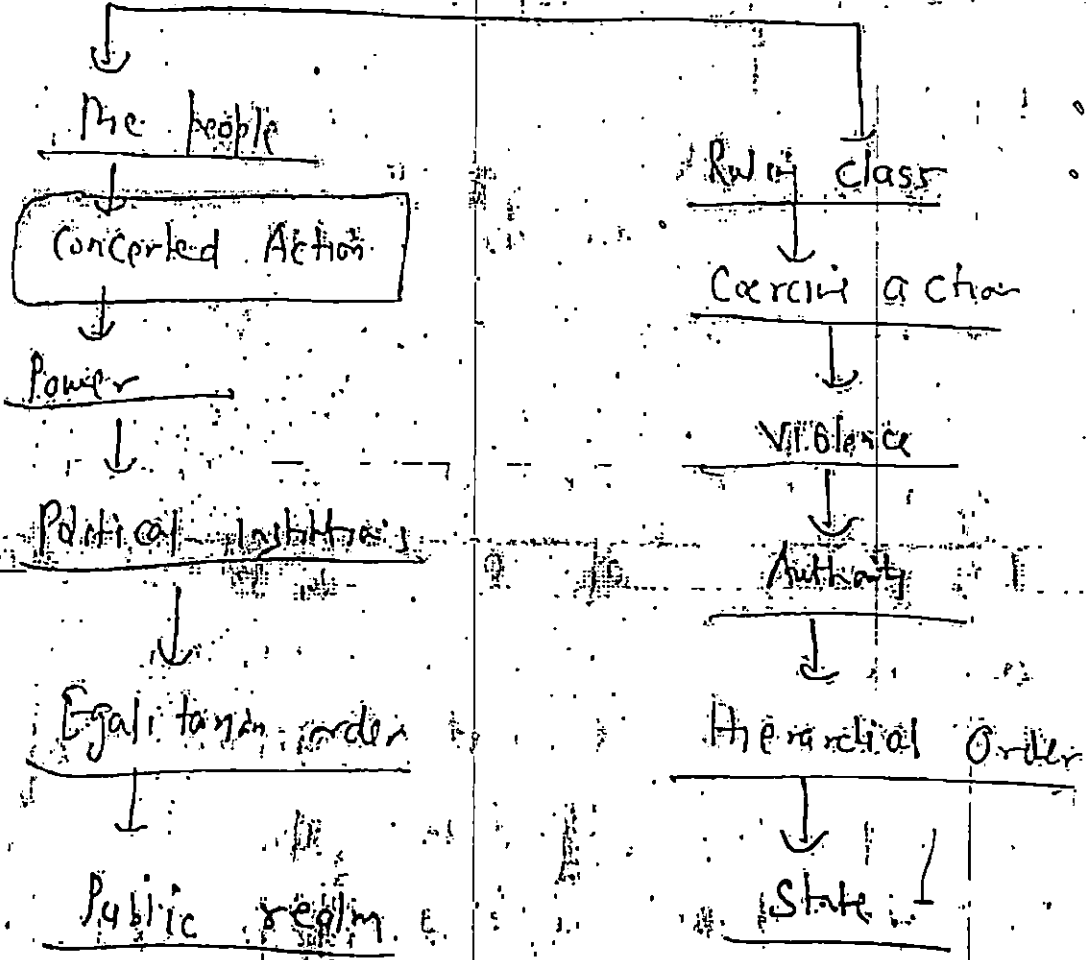 The people
Concerted Action
Power
Political Institutions
Egalitarian order
Public realm
Ruling class
Coercive action
Violence
Authority
Hierarchial Order
State